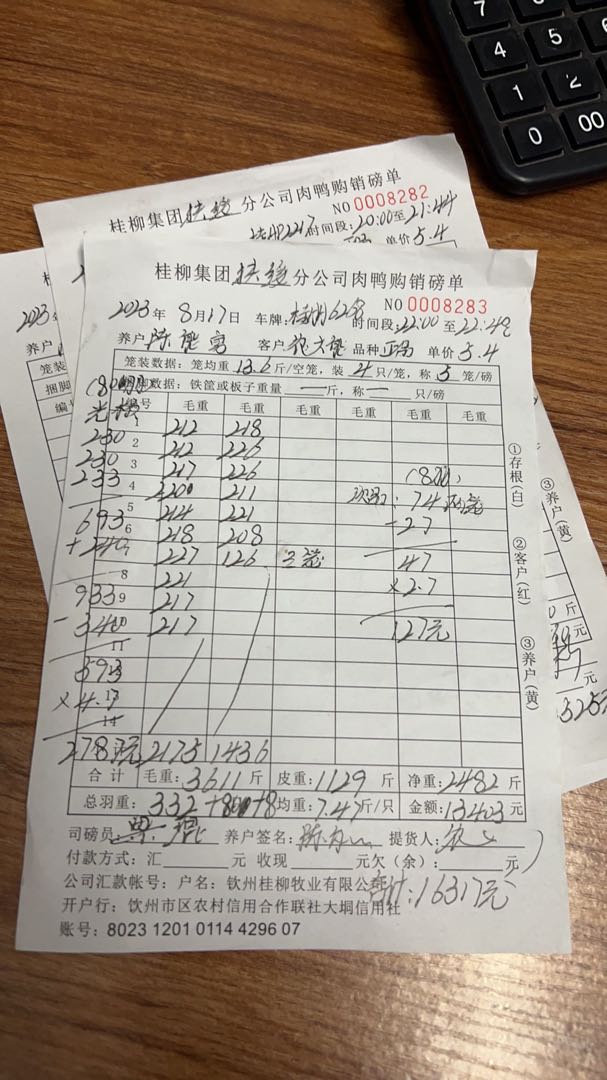 7
4 5 6
1 2
0 00
桂柳集团扶绥分公司肉鸭购销磅单
NO 0008282
时间段:20:00至21:44
单价5.4
桂柳集团扶绥分公司肉鸭购销磅单
2023年8月17日 车牌: NO 0008283
时间段:22:00至22:4
养户 陈 客户 品种 单价5.4
笼装数据:笼均重13.6斤/空笼,装4只/笼,称5笼/磅
数据:铁筐或板子重量一斤,称一只/磅
编号 毛重 毛重 毛重 毛重 毛重 毛重
212 218
230 2 212 226
230 3 217 226
233 4 220 211 74
5 214 221 -27
693 6 218 208
+240 7 227 126 三笼 47
8 221 ×2.7
933 9 217
-340 10 217 127元
11
593
×4.7 13
14
2787元 2175 1436
合计 毛重:3611斤 皮重:1129斤 净重:2482斤
总羽重:332+80+8 均重:7.47斤/只 金额:13403元
司磅员 养户签名: 提货人:
付款方式:汇 元 收现 元欠(余): 元
公司汇款帐号:户名:钦州桂柳牧业有限公司
合计:16317元
开户行:钦州市区农村信用合作联社大垌信用社
账号:8023 1201 0114 4296 07
①存根(白)
②客户(红)
③养户(黄)
2023年
养户
笼装
捆脚
编
③养户(黄)
斤
元
元